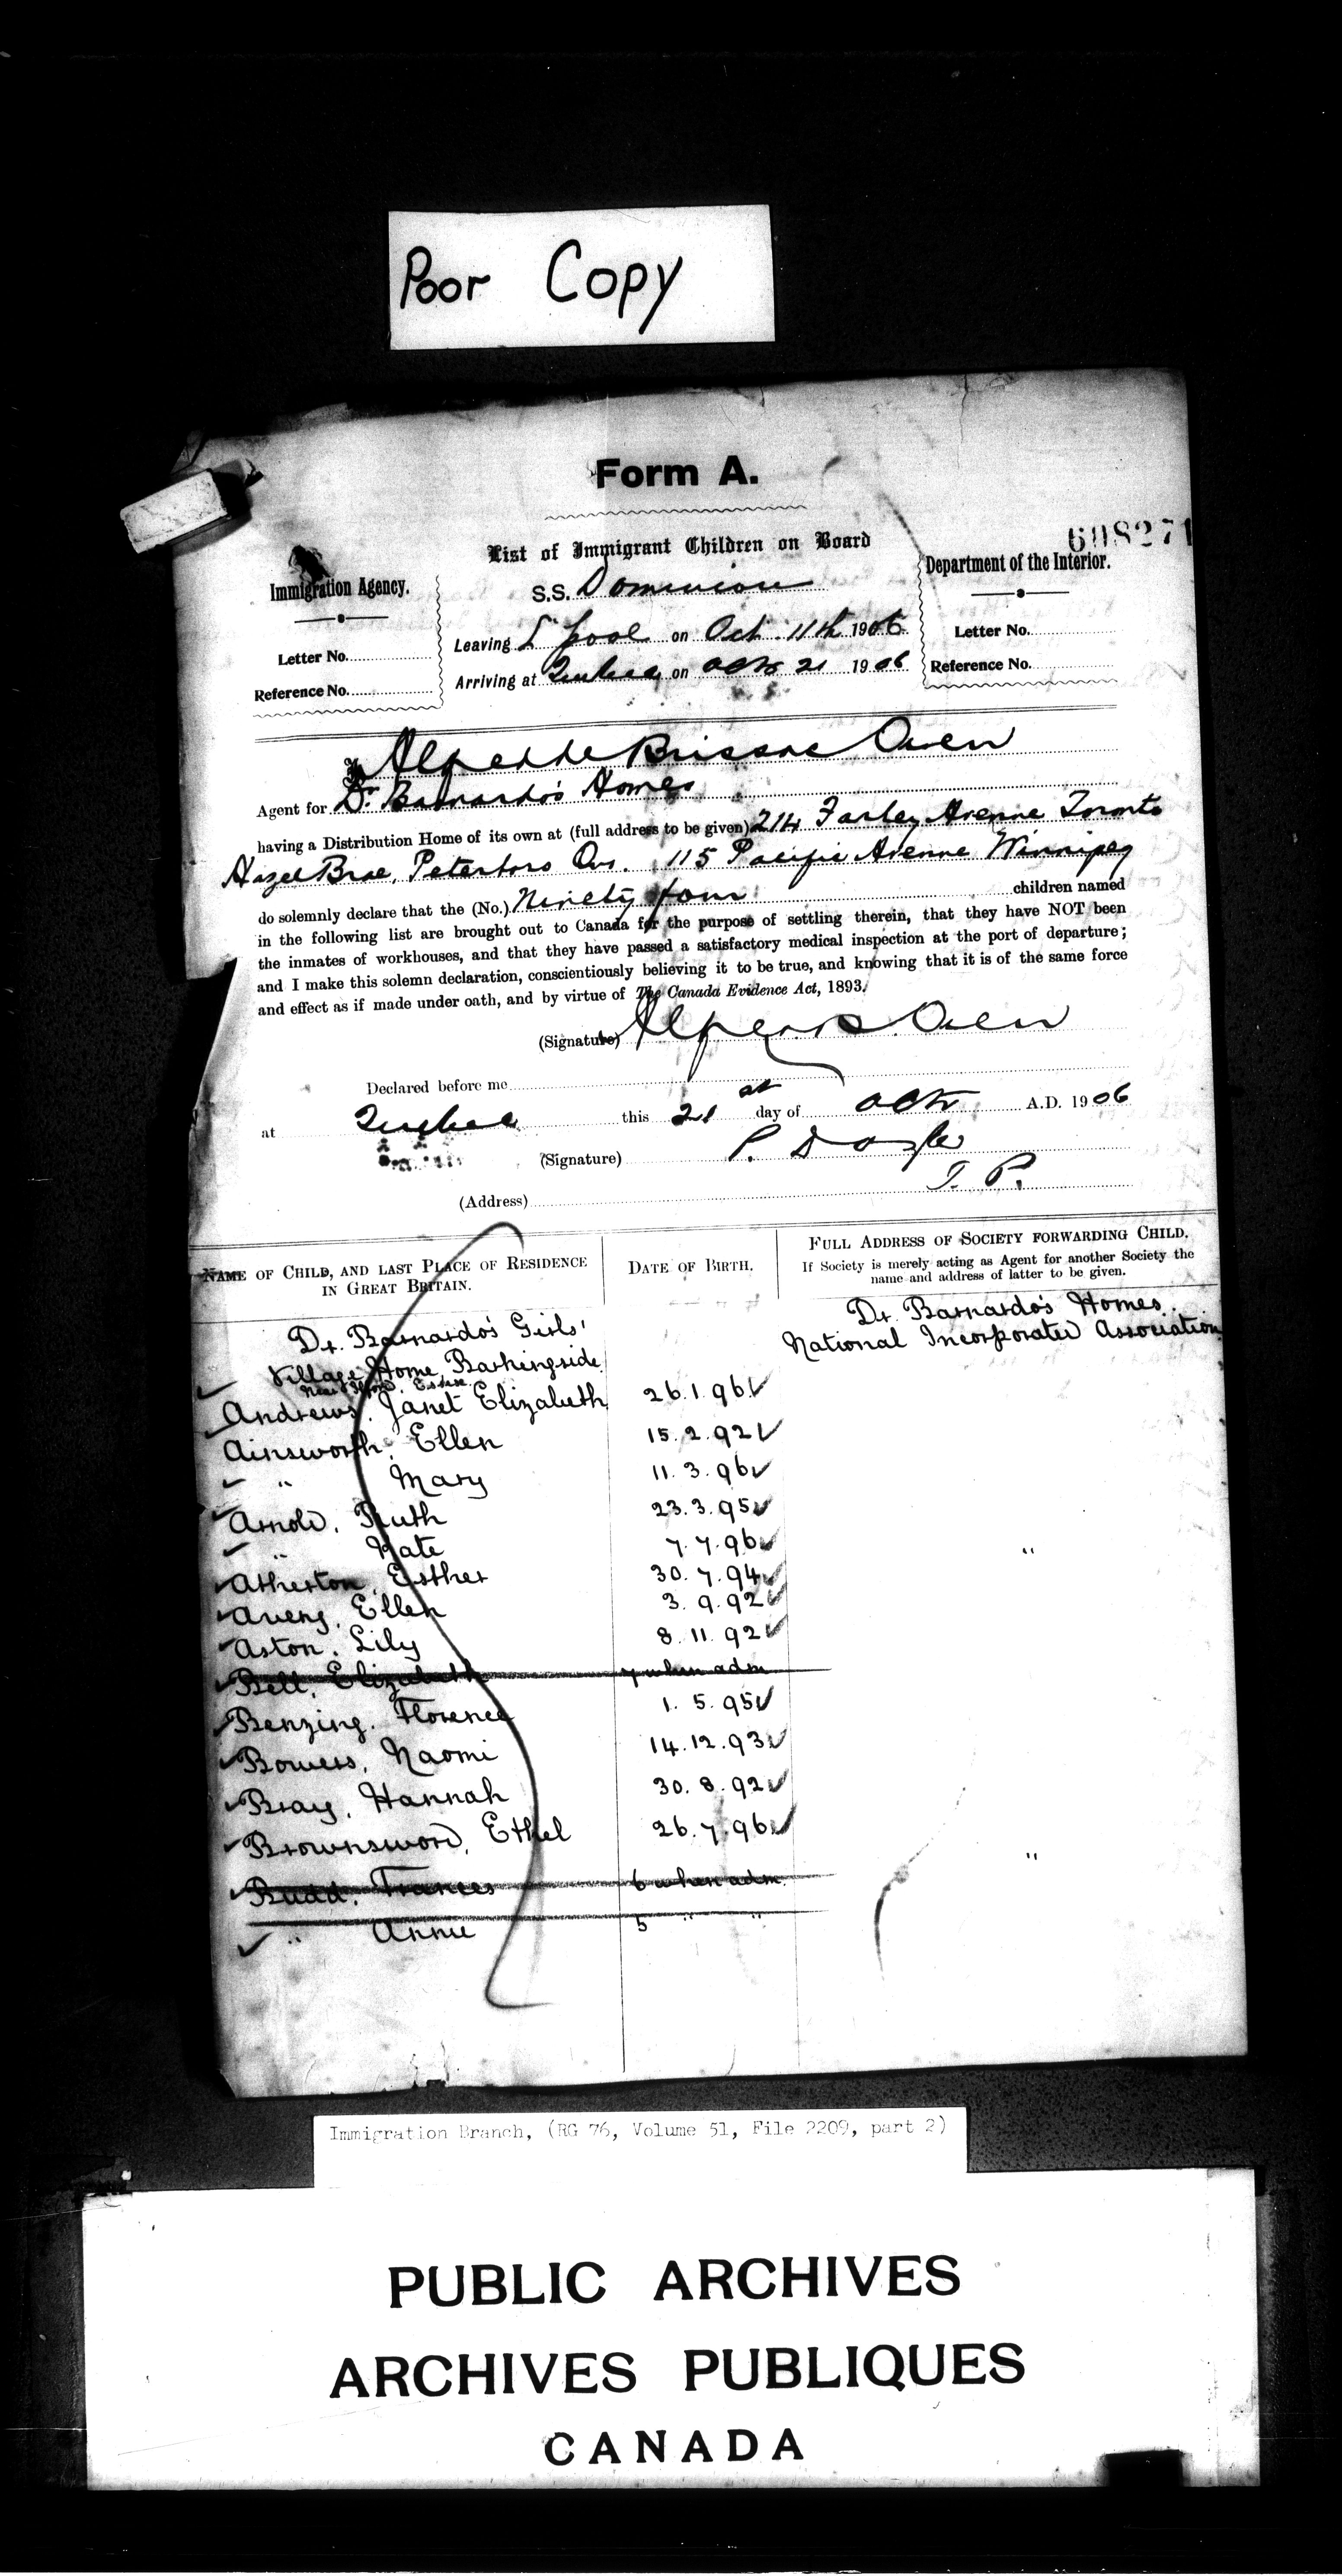 Poor Copy
Form A.
List of Immigrant Children on Board
698271
Immigration Agency.
S.S. Dominion
Department of the Interior.
Leaving L'pool on Oct. 11th 1906
Letter No.
Letter No.
Arriving at Quebec on Oct 21 1906
Reference No.
Reference No.
I, Alfred de Brissac Owen
Agent for Dr. Barnardo's Homes
having a Distribution Home of its own at (full address to be given) 214 Farley Avenue Toronto
Hazel Brae, Peterboro Ont. 115 Pacific Avenue Winnipeg
do solemnly declare that the (No.) Ninety four children named
in the following list are brought out to Canada for the purpose of settling therein, that they have NOT been
the inmates of workhouses, and that they have passed a satisfactory medical inspection at the port of departure;
and I make this solemn declaration, conscientiously believing it to be true, and knowing that it is of the same force
and effect as if made under oath, and by virtue of The Canada Evidence Act, 1893.
(Signature) Owen
Declared before me
at Quebec this 21st day of Oct A.D. 1906
(Signature) P. Doyle
J. P.
(Address)
NAME OF CHILD, AND LAST PLACE OF RESIDENCE
IN GREAT BRITAIN.
DATE OF BIRTH.
FULL ADDRESS OF SOCIETY FORWARDING CHILD.
If Society is merely acting as Agent for another Society the
name and address of latter to be given.
Dr. Barnardo's Girls' Dr. Barnardo's Homes.
Village Home, Barkingside National Incorporated Association
Near Ilford, Essex
Andrews, Janet Elizabeth 26.1.96
Ainsworth, Ellen 15.2.92
" Mary 11.3.96
Arnold, Ruth 23.3.95
" Kate 7.7.96 "
Atherton, Esther 30.7.94
Avery, Ellen 3.9.92
Aston, Lily 8.11.92
Bell, Elizabeth 7 when adm
Benzing, Florence 1.5.95
Bowers, Naomi 14.12.93
Bray, Hannah 30.8.92
Brownsword, Ethel 26.7.96
"
Budd, Frances 6 when adm.
" Annie 5 " "
Immigration Branch, (RG 76, Volume 51, File 2209, part 2)
PUBLIC ARCHIVES
ARCHIVES PUBLIQUES
CANADA